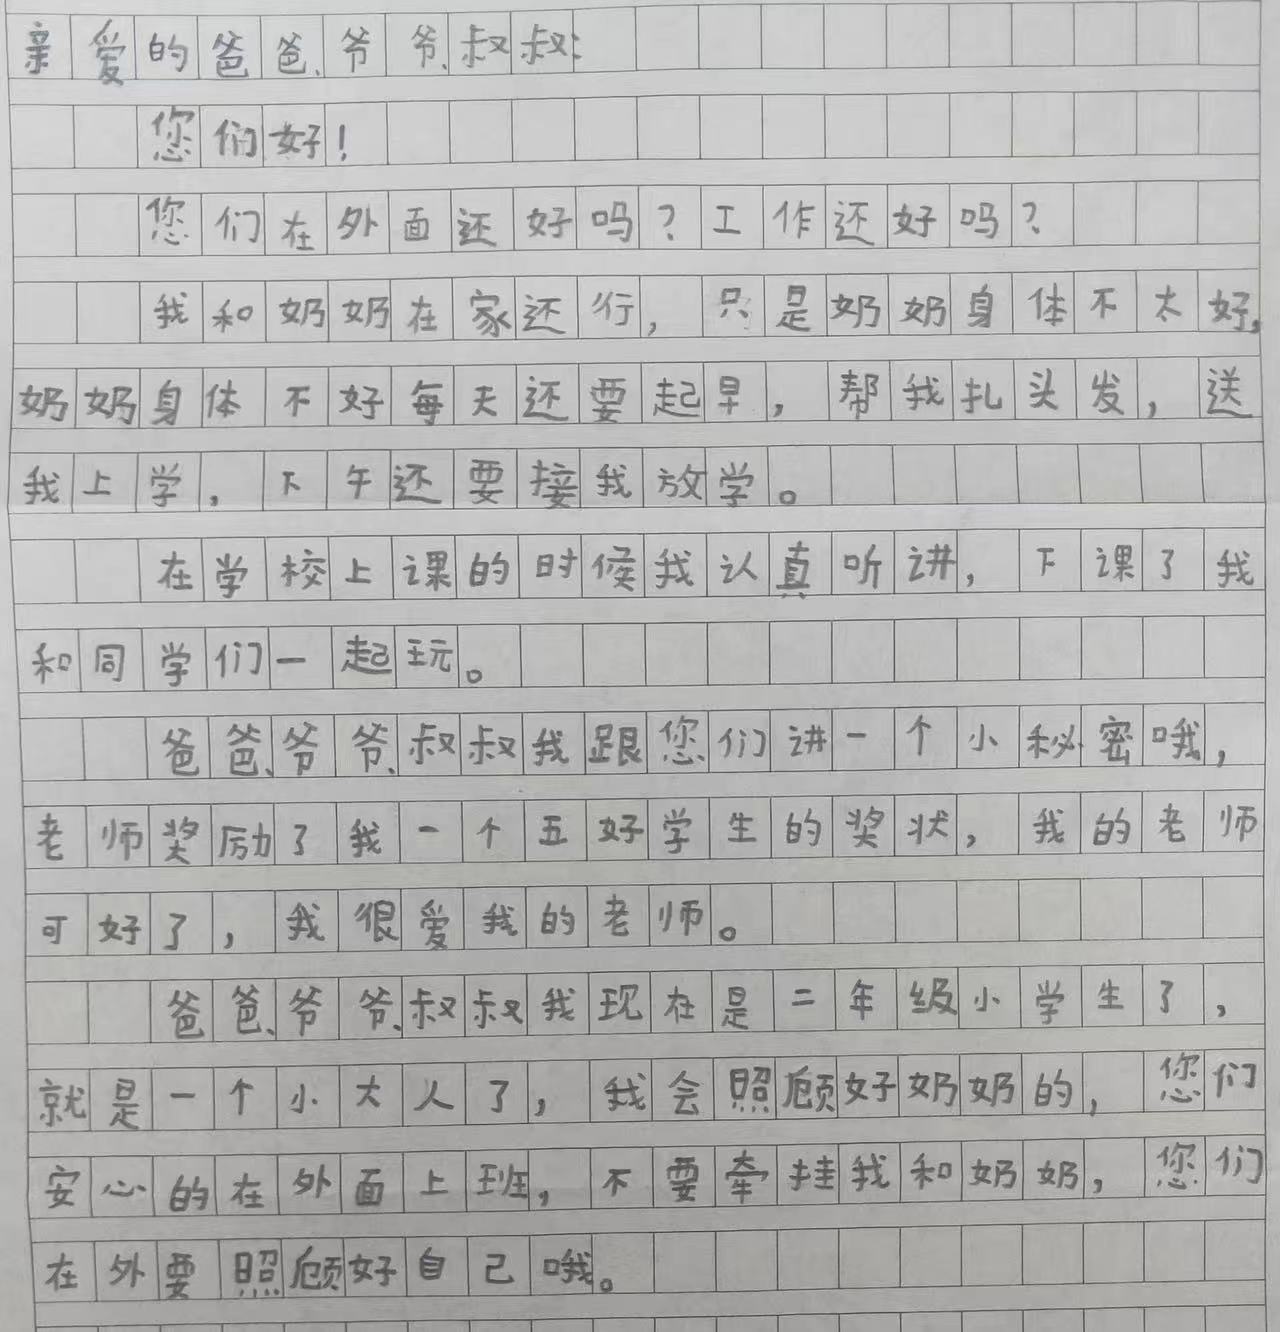 亲爱的爸爸、爷爷、叔叔:
您们好!
您们在外面还好吗?工作还好吗?
我和奶奶在家还行,只是奶奶身体不太好,
奶奶身体不好每天还要起早,帮我扎头发,送
我上学,下午还要接我放学。
在学校上课的时候我认真听讲,下课了我
和同学们一起玩。
爸爸、爷爷、叔叔我跟您们讲一个小秘密哦,
老师奖励了我一个五好学生的奖状,我的老师
可好了,我很爱我的老师。
爸爸、爷爷、叔叔我现在是二年级小学生了,
就是一个小大人了,我会照顾好奶奶的,您们
安心的在外面上班,不要牵挂我和奶奶,您们
在外要照顾好自己哦。